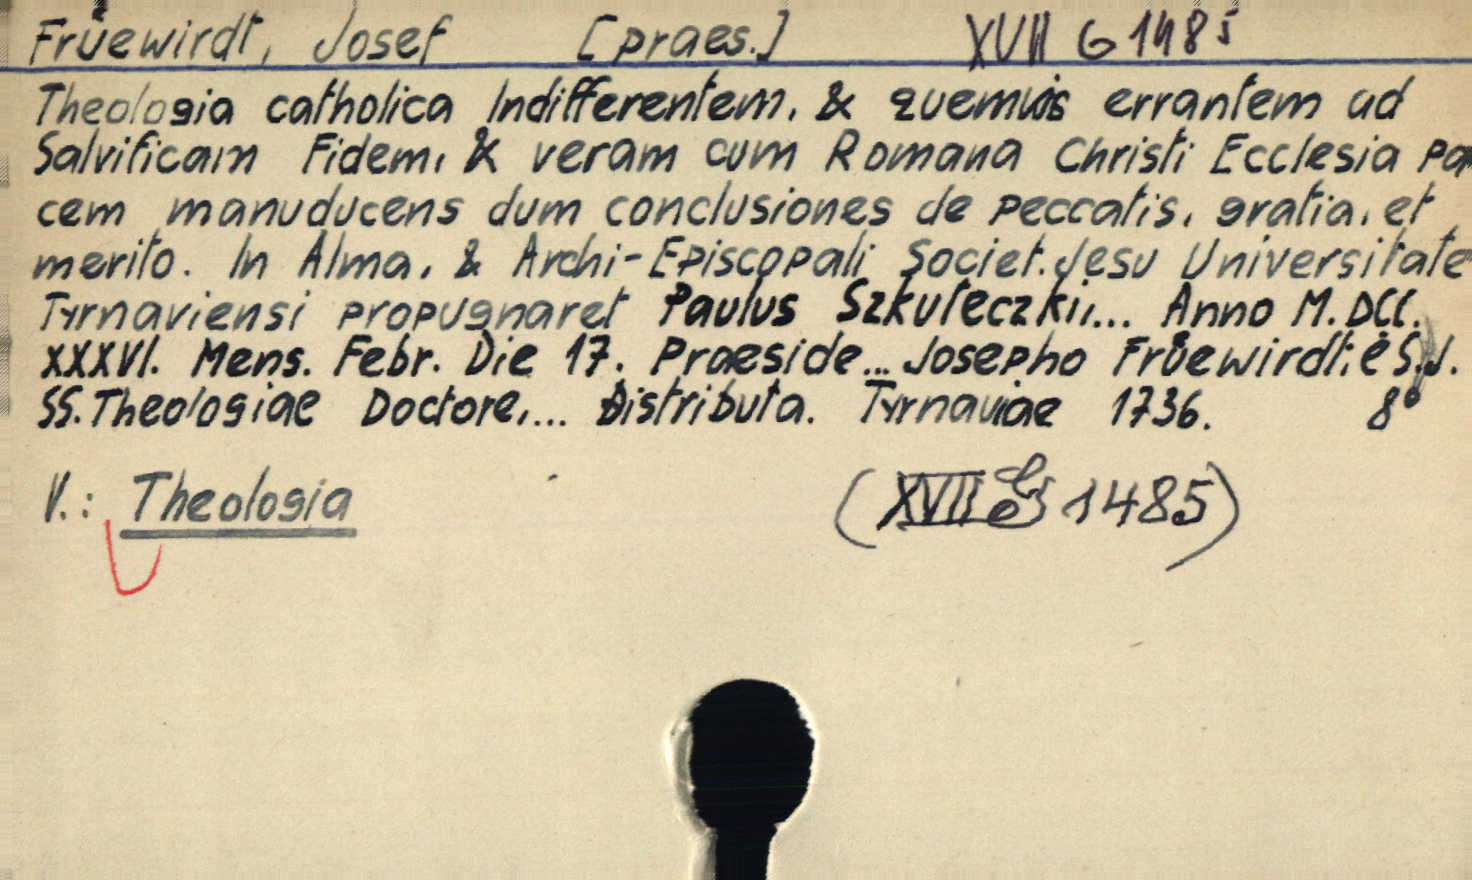 Früewirdt, Josef [praes.] XVII G 1485
Theologia catholica Indifferentem, & quemvis errantem ad
Salvificam Fidem, & veram cum Romana Christi Ecclesia pa
cem manuducens dum conclusiones de peccatis, gratia, et
merito. In Alma, & Archi-Episcopali Societ. Jesu Universitate
Tyrnaviensi propugnaret Paulus Szkuteczkii,... Anno M. DCC.
XXXVI. Mens. Febr. Die 17. Praeside... Josepho Früewirdt, è S.J.
SS. Theologiae Doctore,... Distributa. Tyrnaviae 1736. 8°
V.: Theologia (XVII G 1485)